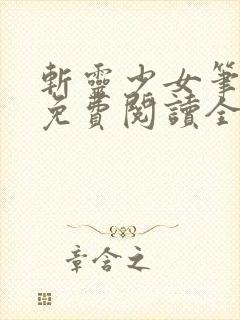 斬靈少女筆
免費閱讀全
章含之